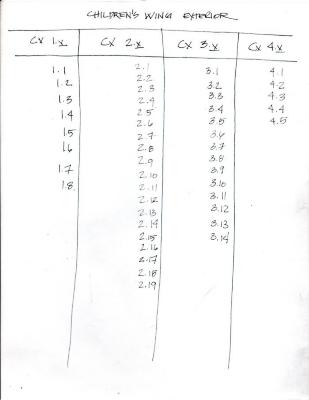 CHILDREN'S WING EXTERIOR
CX 1.x CX 2.x CX 3.x CX 4.x
1.1 2.1 3.1 4.1
1.2 2.2 3.2 4.2
1.3 2.3 3.3 4.3
1.4 2.4 3.4 4.4
1.5 2.5 3.5 4.5
1.6 2.6 3.6
1.7 2.7 3.7
1.8 2.8 3.8
2.9 3.9
2.10 3.10
2.11 3.11
2.12 3.12
2.13 3.13
2.14 3.14
2.15
2.16
2.17
2.18
2.19